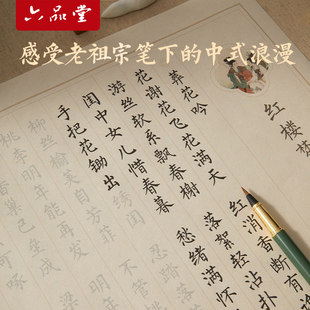 六品堂
感受老祖宗笔下的中式浪漫
红楼梦
葬花吟
花谢花飞花满天
红消香断有
游丝软系飘春榭
落絮轻沾扑
闺中女儿惜春暮
愁绪满怀
手把花锄出
忍踏落
柳丝榆荚自芳菲
不管
桃李明年能再发